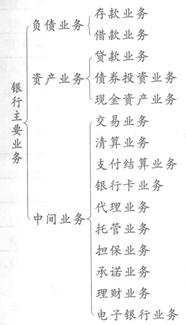 银行主要业务
负债业务
存款业务
借款业务
资产业务
贷款业务
债券投资业务
现金资产业务
中间业务
交易业务
清算业务
支付结算业务
银行卡业务
代理业务
托管业务
担保业务
承诺业务
理财业务
电子银行业务